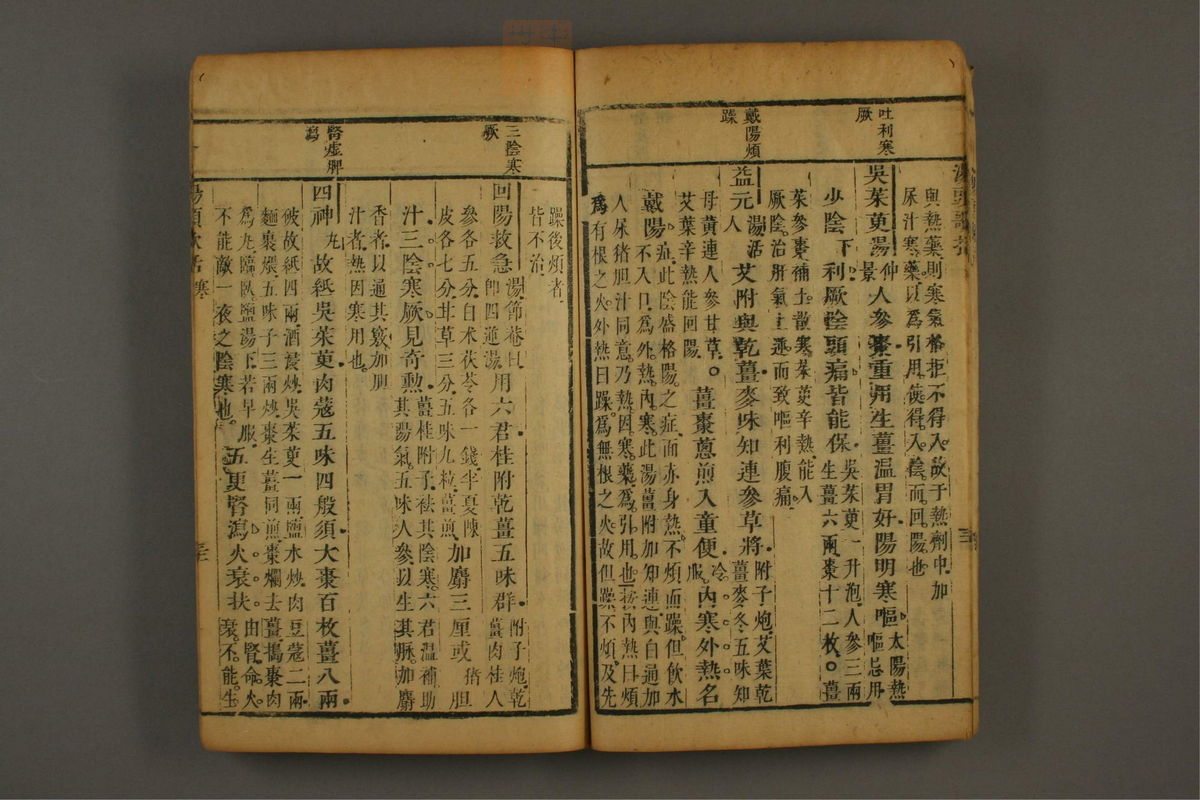 吐利寒厥
戴陽煩躁
湯頭歌括
與熱藥則寒氣格拒不得入故于熱劑中加
尿汁寒藥以為引用使得入陰而回陽也
吳茱萸湯仲景人參棗重用生薑溫胃好陽明寒嘔太陽熱嘔忌用
少陰下利厥陰頭痛皆能保吳茱萸一升泡人參三兩生薑六兩棗十二枚○薑
茱參棗補土散寒茱萸辛熱能入
厥陰治肝氣上逆而致嘔利腹痛
益元湯活人艾附與乾薑麥味知連參草將附子炮艾葉乾薑麥冬五味知
母黃連人參甘草○
艾葉辛熱能回陽
薑棗蔥煎入童便冷服內寒外熱名
戴陽症此陰盛格陽之症面赤身熱不煩而躁但飲水
不入口為外熱內寒此湯薑附加知連與白通加
人尿猪胆汁同意乃熱因寒藥為引用也按內熱曰煩
為有根之火外熱曰躁為無根之火故但躁不煩及先
三陰寒厥
腎虛脾瀉
躁後煩者
皆不治
回陽救急湯節菴曰即四逆湯用六君桂附乾薑五味群附子炮乾薑肉桂人
參各五分白术茯苓各一錢半夏陳
皮各七分甘草三分五味九粒薑煎
加麝三厘或猪胆
汁三陰寒厥見奇勲薑桂附子祛其陰寒六君溫補助其陽氣五味人參以生其脉加麝
香者以通其竅加胆
汁者熱因寒用也
四神丸故紙吳茱萸肉蔻五味四般須大棗百枚薑八兩
破故紙四兩酒浸炒吳茱萸一兩鹽水炒肉豆蔻二兩
麵裹煨五味子三兩炒棗生薑同煎棗爛去薑搗棗肉
為丸臨臥鹽湯下若早服
不能敵一夜之陰寒也
五更腎瀉火衰扶由腎命火衰不能生
湯頭歌括 寒